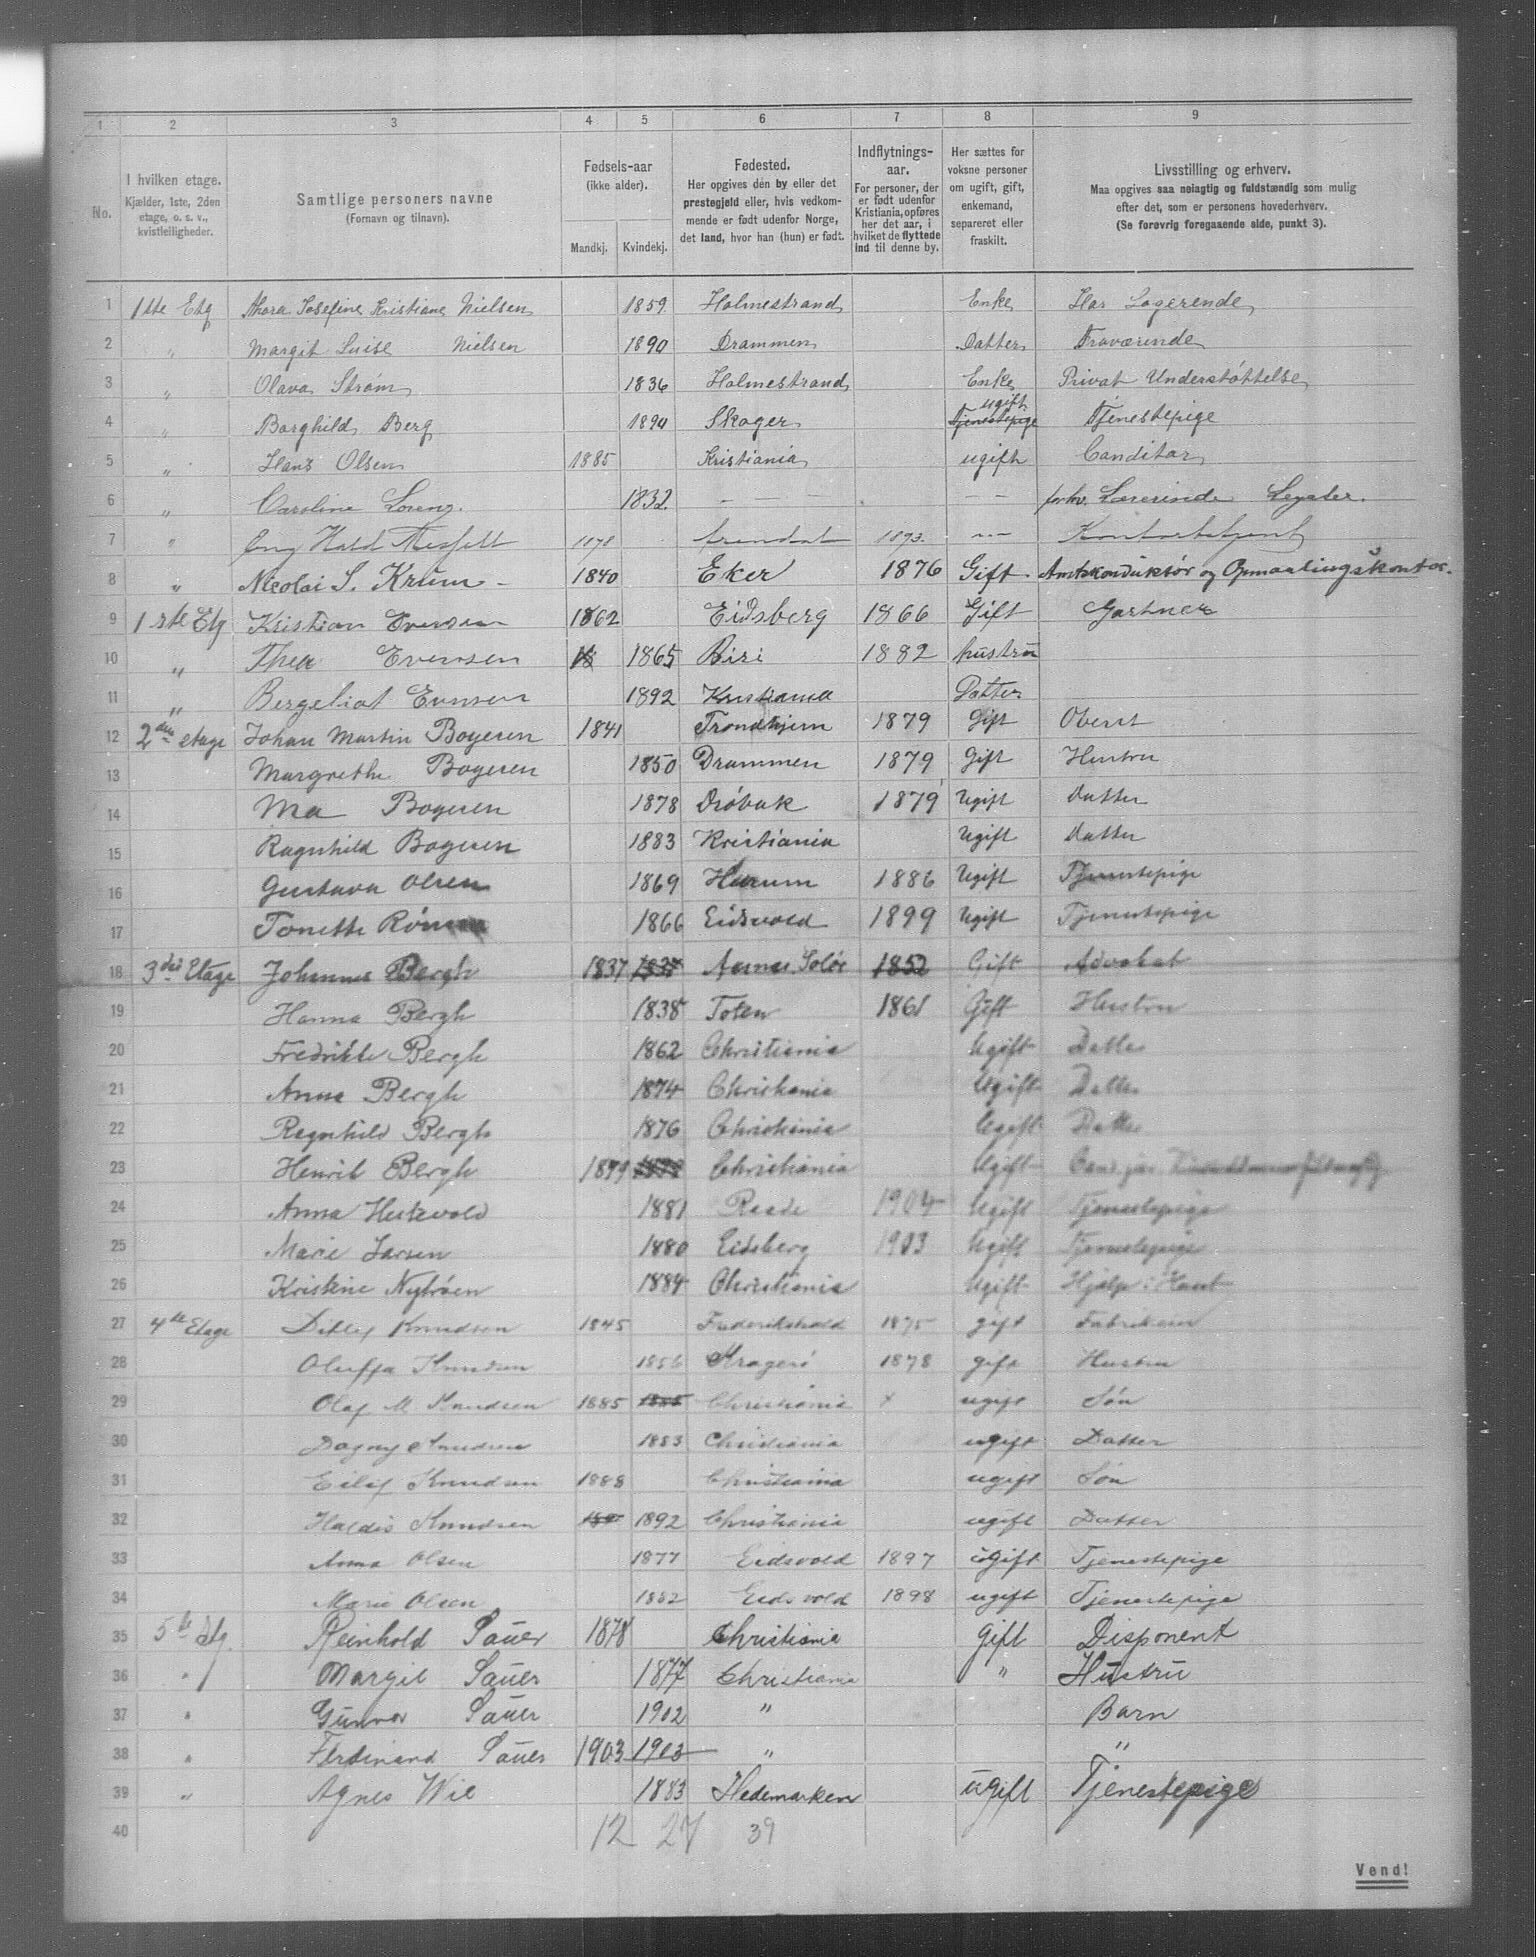 1 2 3 4 5 6 7 8 9
No.
I hvilken etage.
Kjælder, 1ste, 2den
etage, o. s. v.,
kvistleiligheder.
Samtlige personers navne
(Fornavn og tilnavn).
Fødsels-aar
(ikke alder).
Mandkj. Kvindekj.
Fødested.
Her opgives den by eller det
prestegjeld eller, hvis vedkom-
mende er født udenfor Norge,
det land, hvor han (hun) er født.
Indflytnings-
aar.
For personer, der
er født udenfor
Kristiania, opføres
her det aar, i
hvilket de flyttede
ind til denne by.
Her sættes for
voksne personer
om ugift, gift,
enkemand,
separeret eller
fraskilt.
Livsstilling og erhverv.
Maa opgives saa nøiagtig og fuldstændig som mulig
efter det, som er personens hovederhverv.
(Se forøvrig foregaaende side, punkt 3).
1 1ste Etg Thora Josefine Kristiane Nielsen 1859 Holmestrand Enke Har Logerende
2 " Margit Luise Nielsen 1890 Drammen Datter Fraværende
3 " Olava Strøm 1836 Holmestrand Enke Privat Understøttelse
4 " Borghild Berg 1890 Skoger ugift Tjenestepige Tjenestepige
5 " Hans Olsen 1885 Kristiania ugift Canditor
6 " Caroline Lorenz. 1832 — — — — — forhv. Lærerinde Legater.
7 " 1878 Arendal 1893. — Kontorbetjent
8 " Nicolai S. Krum 1840 Eker 1876 Gift Amtskonduktør og Opmaalingskontor.
9 1ste Etg Kristian Evensen 1862 Eidsberg 1866 Gift Gartner
10 " Thea Evensen 1865 Biri 1882 hustru
11 " Bergeliot Evensen 1892 Kristiania Datter
12 2den etage Johan Martin Boyesen 1841 Trondhjem 1879 Gift Oberst
13 Margrethe Boyesen 1850 Drammen 1879 Gift Hustru
14 Boyesen 1878 Drøbak 1879 Ugift Datter
15 Ragnhild Boyesen 1883 Kristiania Ugift Datter
16 Gustava Olsen 1869 Hurum 1886 Ugift Tjenestepige
17 Tonette 1866 Eidsvold 1899 Ugift Tjenestepige
18 3die Etage Johannes Bergh 1837 1837 Aasnes Solør 1852 Gift Advokat
19 Hanna Bergh 1838 Toten 1861 Gift Hustru
20 Fredrikke Bergh 1862 Christiania Ugift Datter
21 Anna Bergh 1874 Christiania Ugift Datter
22 Ragnhild Bergh 1876 Christiania Ugift Datter
23 Henrik Bergh 1879 Christiania Ugift Cand jur.
24 Anna 1881 Raade 1904 Ugift Tjenestepige
25 Marie Larsen 1880 Eidsberg 1903 Ugift Tjenestepige
26 Kristine Nybrøen 1884 Christiania Ugift Hjælp i Huset
27 4de Etage Ditlef Knudsen 1845 Frederikshald 1875 gift Fabrikeier
28 Oluffa Knudsen 1856 Kragerø 1878 gift Hustru
29 Olaf M Knudsen 1885 1885 Christiania ugift Søn
30 Dagny Knudsen 1883 Christiania ugift Datter
31 Eilif Knudsen 1888 Christiania ugift Søn
32 Haldis Knudsen 1892 Christiania ugift Datter
33 Anna Olsen 1877 Eidsvold 1897 ugift Tjenestepige
34 Marie Olsen 1882 Eidsvold 1898 ugift Tjenestepige
35 5te Etg. Reinhold Sauer 1878 Christiania Gift Disponent
36 " Margit Sauer 1877 Christiania " Hustru
37 " Gunvor Sauer 1902 " Barn
38 " Ferdinand Sauer 1903 1903 " "
39 " Agnes Wie 1883 Hedemarken ugift Tjenestepige
40 12 27 39
Vend!